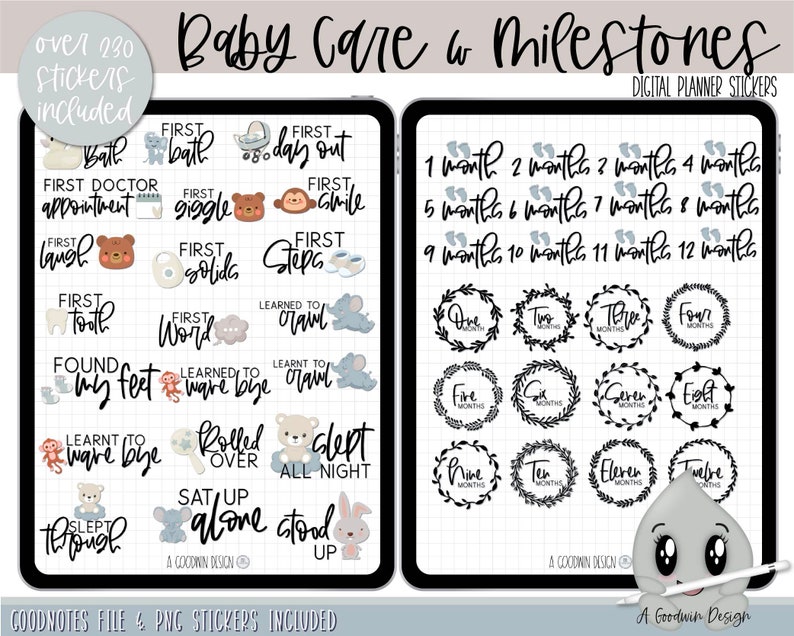 over 230
stickers
included
Baby Care & Milestones
DIGITAL PLANNER STICKERS
Bath
FIRST
bath
FIRST
day out
FIRST DOCTOR
appointment
FIRST
giggle
FIRST
smile
FIRST
laugh
FIRST
solids
FIRST
Steps
FIRST
tooth
FIRST
Word
LEARNED TO
crawl
FOUND
my feet
LEARNED TO
wave bye
LEARNT TO
crawl
LEARNT TO
wave bye
Rolled
OVER
slept
ALL NIGHT
SLEPT
through
SAT UP
alone
stood
UP
A GOODWIN DESIGN
1 month 2 months 3 months 4 months
5 months 6 months 7 months 8 months
9 months 10 months 11 months 12 months
One
MONTH
Two
MONTHS
Three
MONTHS
Four
MONTHS
Five
MONTHS
Six
MONTHS
Seven
MONTHS
Eight
MONTHS
Nine
MONTHS
Ten
MONTHS
Eleven
MONTHS
Twelve
MONTHS
A GOODWIN DESIGN
A Goodwin Design
GOODNOTES FILE & PNG STICKERS INCLUDED